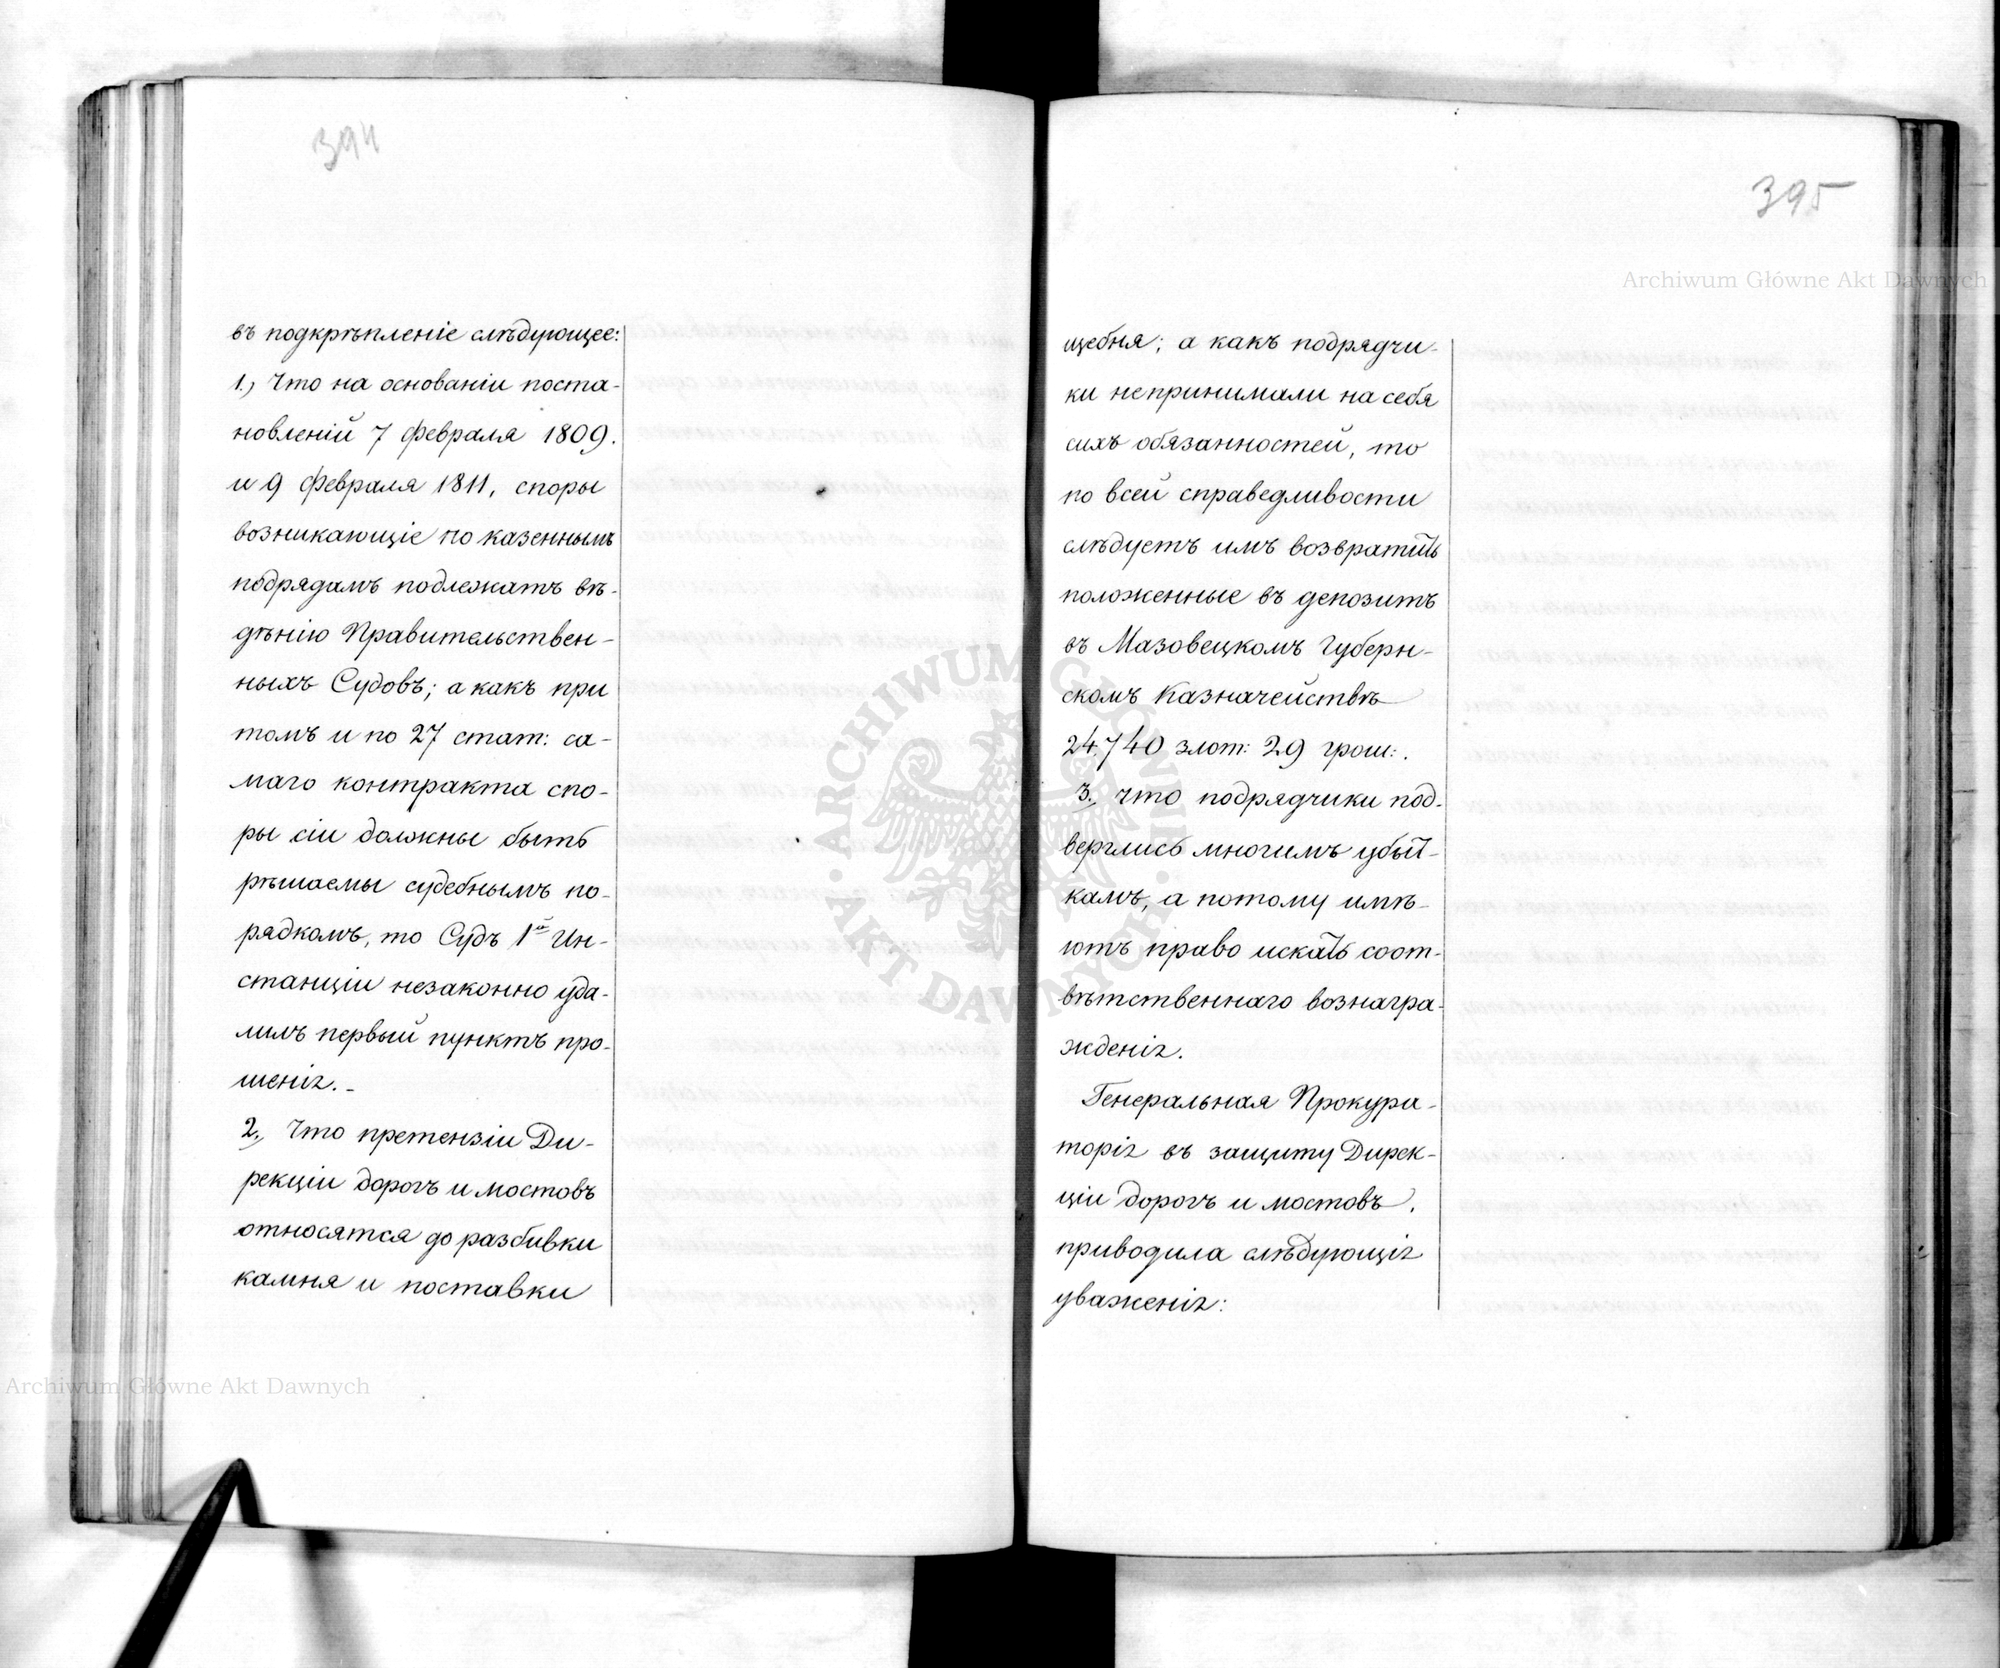 394
въ подкрѣпленіе слѣдующее:
1., Что на основаніи поста-
новленій 7 Февраля 1809.
и 9 Февраля 1811, споры
возникающіе по казеннымъ
подрядамъ подлежатъ вѣ-
дѣнію Правительствен-
ныхъ Судовъ; а какъ при
томъ и по 27 стат: са-
маго контракта спо-
ры сіи должны быть
рѣшаемы судебнымъ по-
рядкомъ, то Судъ 1й Ин-
станціи незаконно уда-
лилъ первый пунктъ про-
шенія.-
2., Что претензіи Ди-
рекціи дорогъ и мостовъ
относятся до разбивки
камня и поставки
395
щебня; а какъ подрядчи-
ки непринимали на себя
сихъ обязанностей, то
по всей справедливости
слѣдуетъ имъ возвратить
положенные въ депозитъ
въ Мазовецкомъ Губерн-
скомъ Казначействѣ
24,740 злот: 29 грош:.
3., что подрядчики под-
верглись многимъ убыт-
камъ, а потому имѣ-
ютъ право искать соот-
вѣтственнаго вознагра-
жденія.
Генеральная Прокура-
торія въ защиту Дирек-
ціи дорогъ и мостовъ,
приводила слѣдующія
уваженія:
Archiwum Główne Akt Dawnych
Archiwum Główne Akt Dawnych
ARCHIWUM GŁÓWNE · AKT DAWNYCH ·